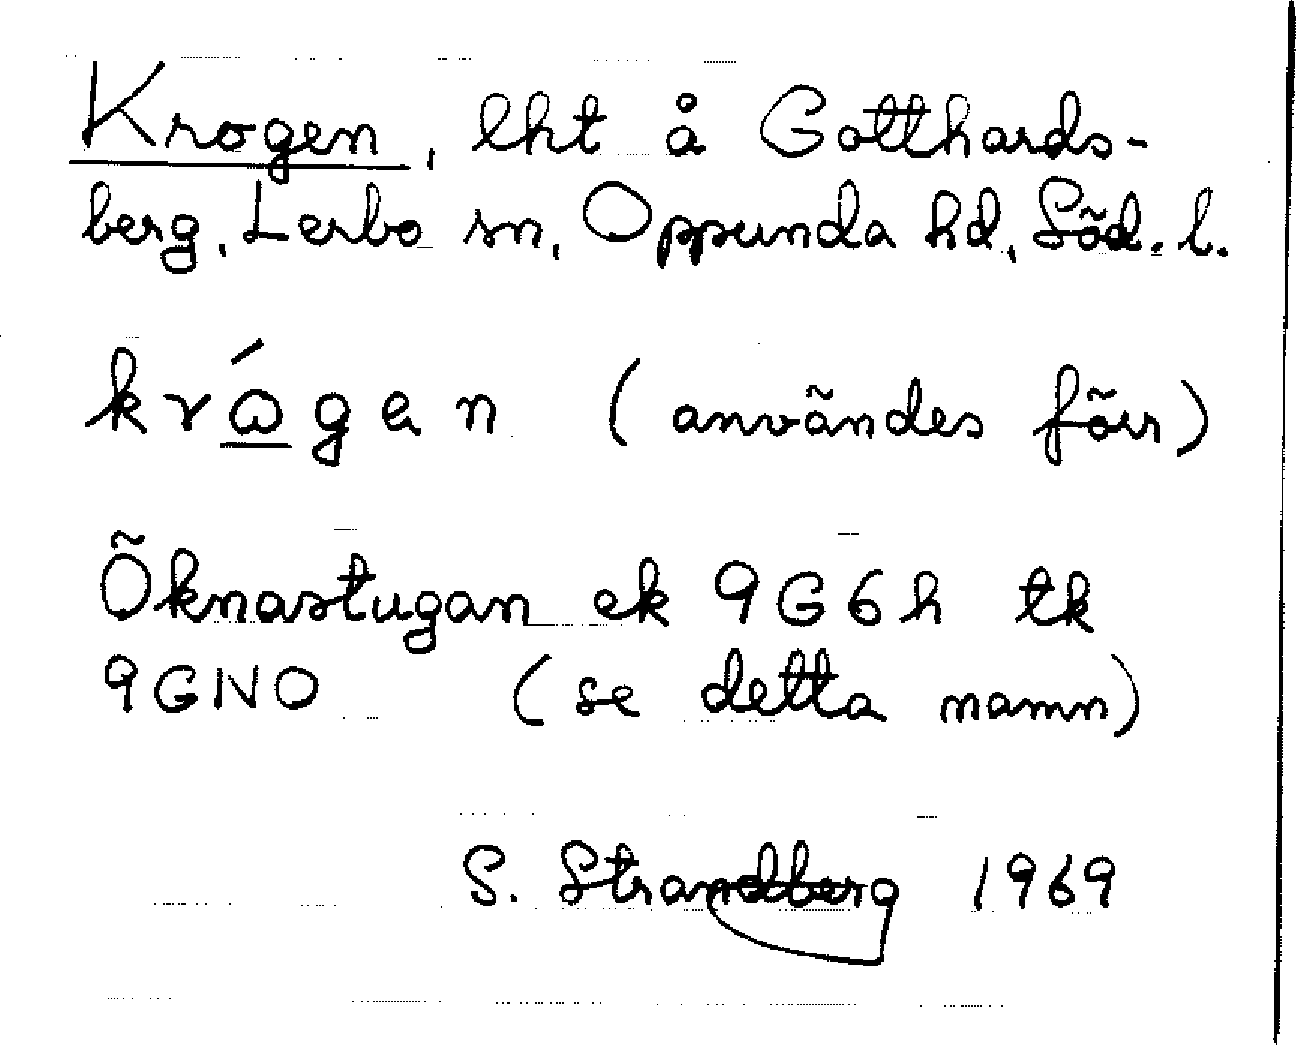 Krogen, lht å Gotthards-
berg, Lerbo sn, Oppunda hd, Söd. l.
krógen (användes förr)
Öknastugan ek 9G6h tk
9GNO (se detta namn)
S. Strandberg 1969